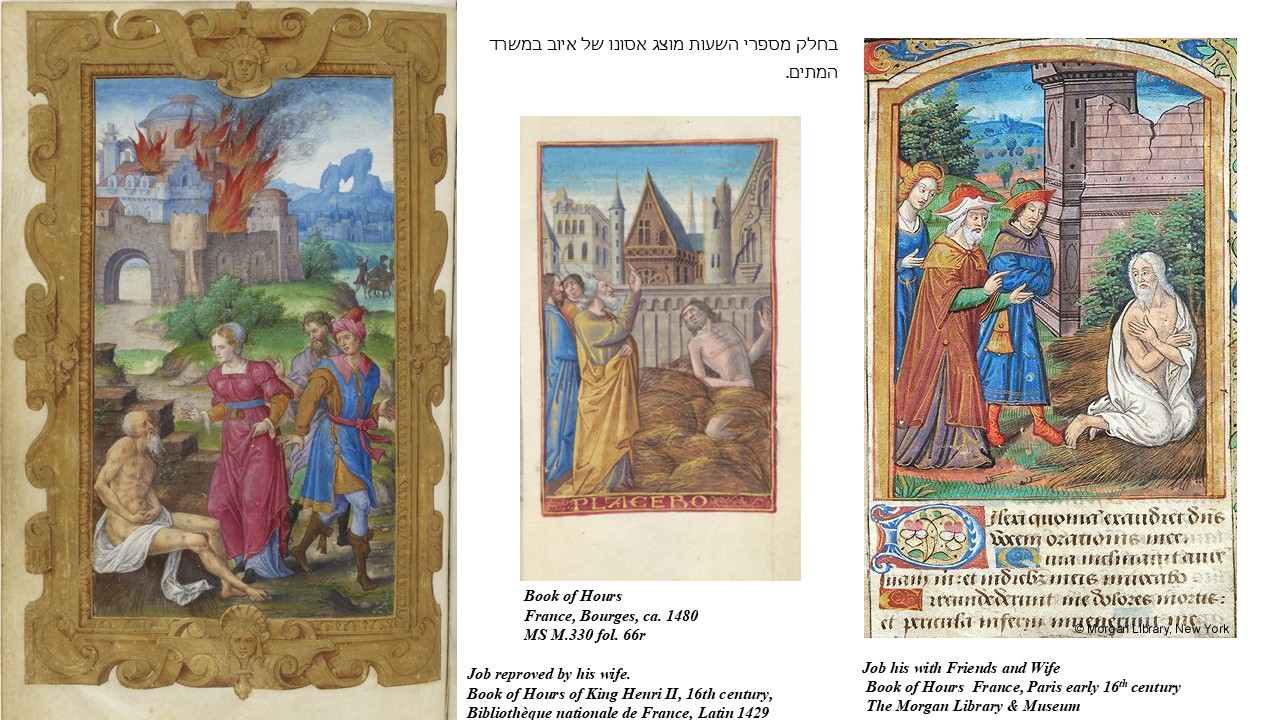 בחלק מספרי השעות מוצג אסונו של איוב במשרד
המתים.
PLACEBO
Book of Hours
France, Bourges, ca. 1480
MS M.330 fol. 66r
Job reproved by his wife.
Book of Hours of King Henri II, 16th century,
Bibliothèque nationale de France, Latin 1429
Dilexi quoniam exaudiet dñs
vocem orationis mee.
Quia inclinauit aurē
suam m: et in dieb3 meis inuocabo
et pericula inferni inuenerunt me
© Morgan Library, New York
Job his with Friends and Wife
Book of Hours France, Paris early 16th century
The Morgan Library & Museum